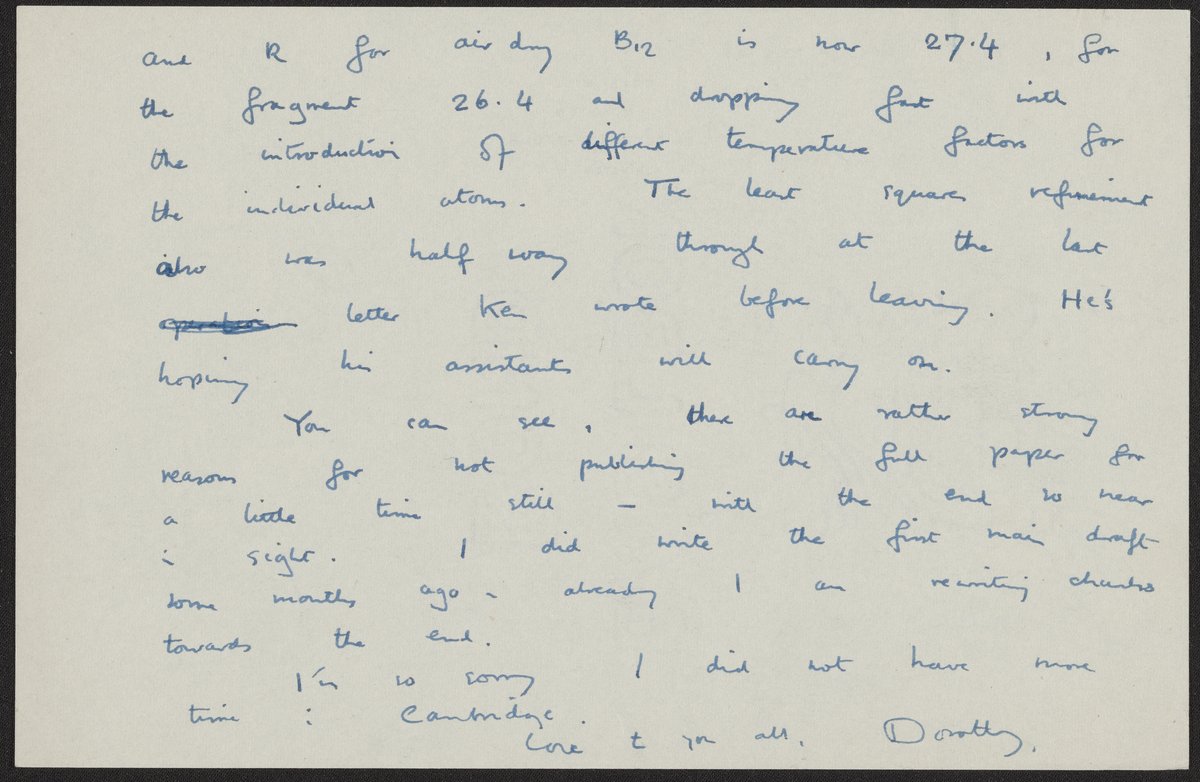 and R for air dry B12 is now 27.4, for
the fragment 26.4 and dropping fast with
the introduction of different temperature factors for
the individual atoms. The least squares refinement
also was half way through at the last
letter Ken wrote before leaving. He's
hoping his assistants will carry on.
You can see, there are rather strong
reasons for not publishing the full paper for
a little time still – with the end so near
in sight. I did write the first main draft
some months ago – already I am rewriting chunks
towards the end.
I'm so sorry I did not have more
time in Cambridge.
Love to you all, Dorothy.